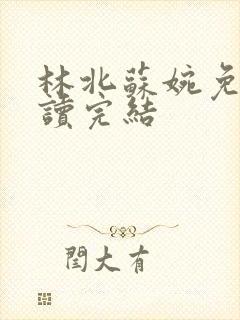 林北蘇婉免
讀完結
閏大有